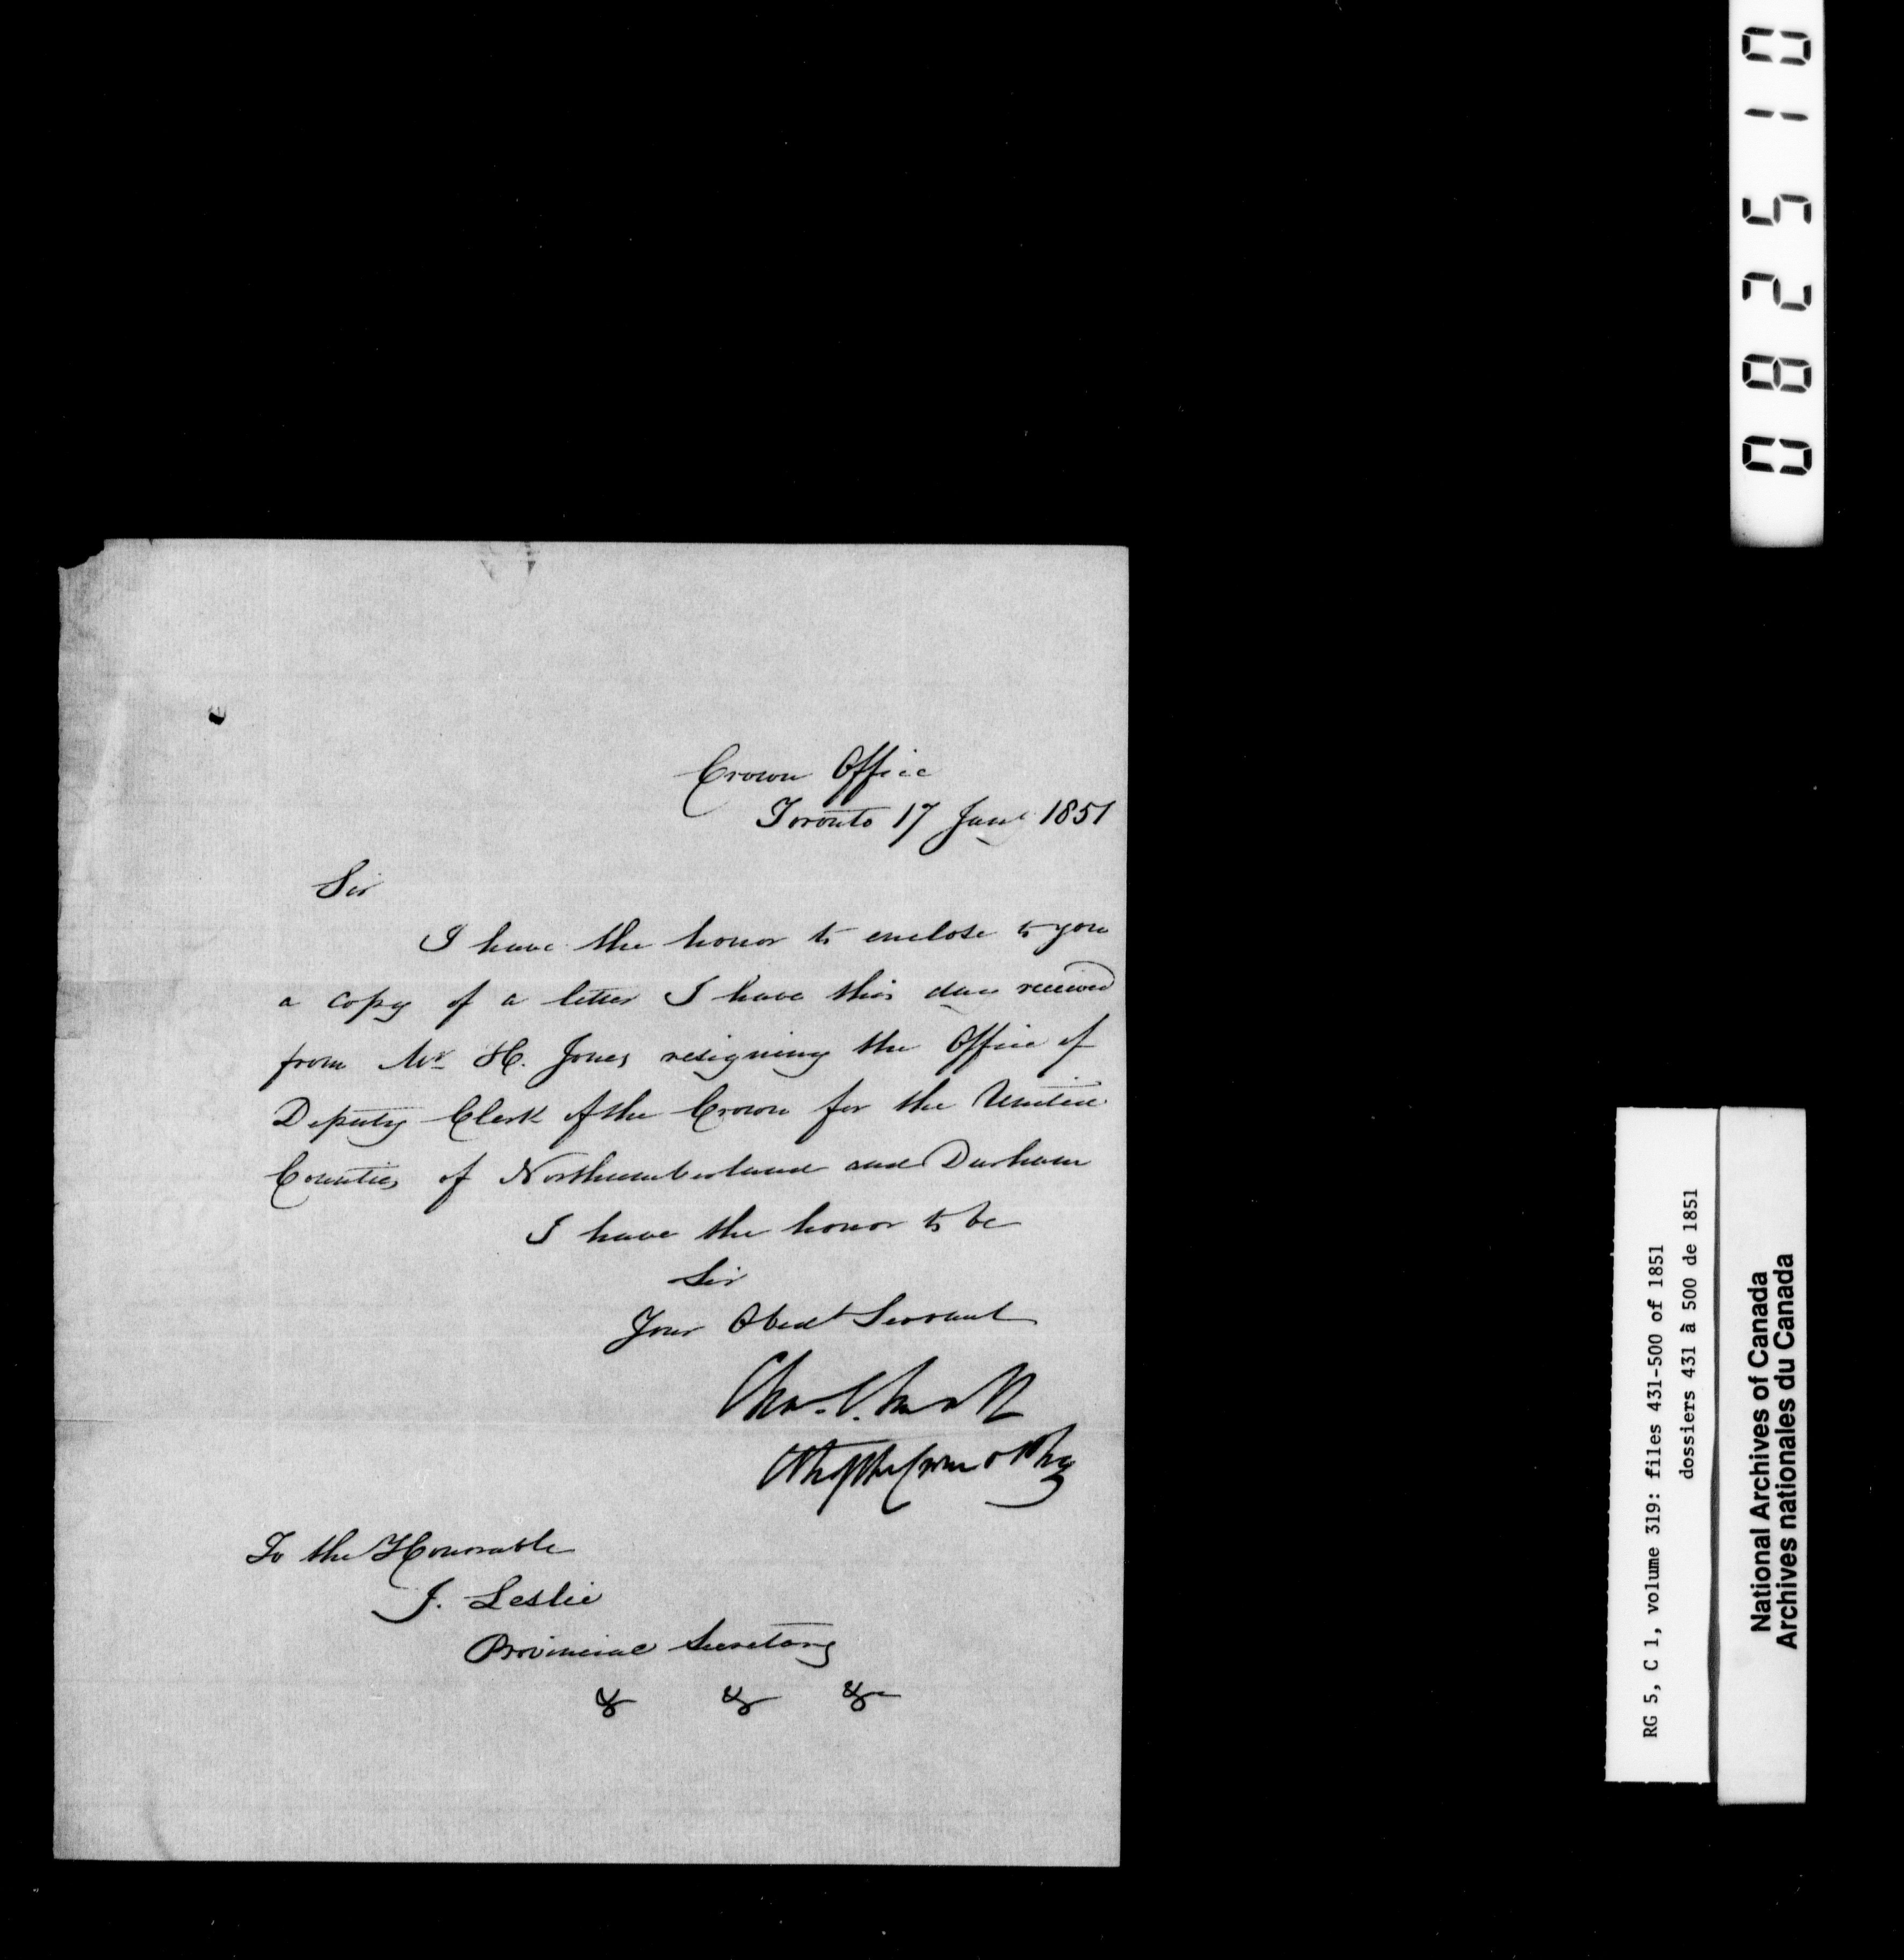 Crown Office
Toronto 17 June 1851
Sir
I have the honor to enclose to you
a copy of a letter I have this day received
from Mr H. Jones resigning the Office of
Deputy Clerk of the Crown for the United
Counties of Northumberland and Durham
I have the honor to be
Sir
Your Obedt Servant
Chas. C. Small
Clk of the Crown & Pleas
To the Honorable
J. Leslie
Provincial Secretary
& & &c
082510
RG 5, C 1, volume 319: files 431-500 of 1851
dossiers 431 à 500 de 1851
National Archives of Canada
Archives nationales du Canada